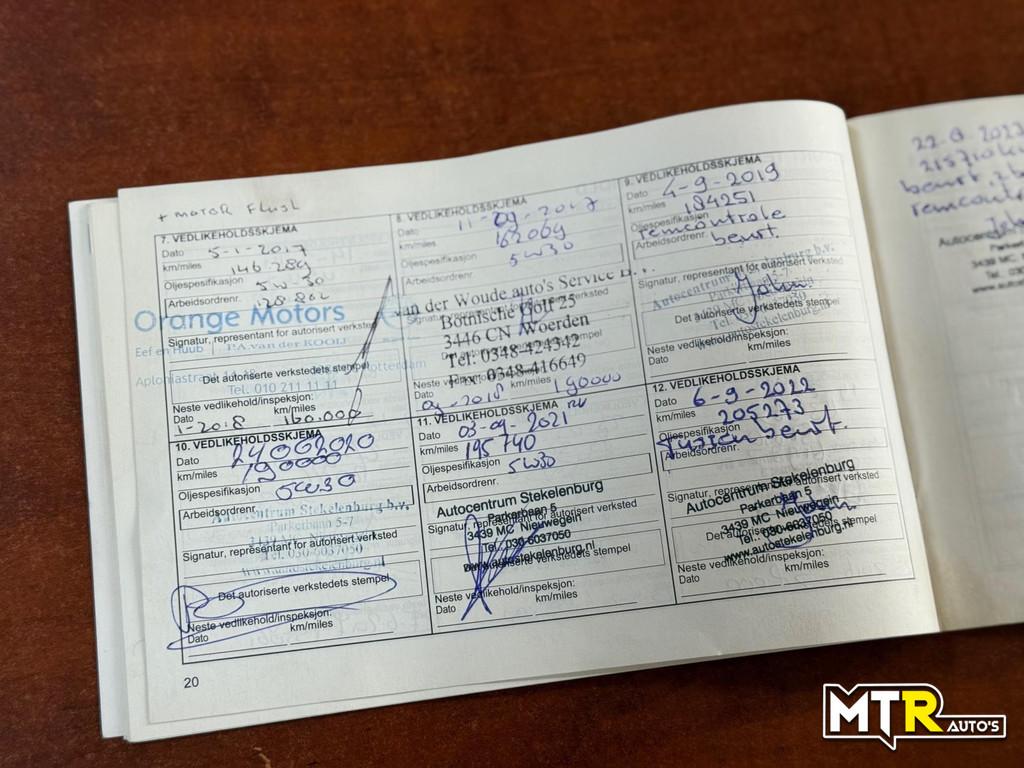 + MOTOR Flush
7. VEDLIKEHOLDSSKJEMA
Dato 5-1-2017
km/miles 146.289
Oljespesifikasjon 5W-30
Arbeidsordrenr.
Orange Motors
Eef en Huub P.A. van der KOOIJ
Signatur, representant for autorisert verksted
Det autoriserte verkstedets stempel
Tel. 010 211 11 11
Neste vedlikehold/inspeksjon:
Dato km/miles
1-2018 160.000
8. VEDLIKEHOLDSSKJEMA
Dato 11-09-2017
km/miles 162069
Oljespesifikasjon 5W30
Arbeidsordrenr.
van der Woude auto's Service
Botnische Golf 25
3446 CN Woerden
Tel: 0348-424342
Fax: 0348-416649
Neste vedlikehold/inspeksjon:
Dato 09-2018 km/miles 190000
9. VEDLIKEHOLDSSKJEMA
Dato 4-9-2019
km/miles 184251
Oljespesifikasjon remcontrole
Arbeidsordrenr. beurt.
Signatur, representant for autorisert verksted
Autocentrum Stekelenburg b.v.
Det autoriserte verkstedets stempel
Neste vedlikehold/inspeksjon:
Dato km/miles
10. VEDLIKEHOLDSSKJEMA
Dato 24002020
km/miles 190000
Oljespesifikasjon 5W30
Arbeidsordrenr.
Autocentrum Stekelenburg b.v.
Parkerbaan 5-7
Signatur, representant for autorisert verksted
Tel. 030-6037050
www.autostekelenburg.nl
Det autoriserte verkstedets stempel
Neste vedlikehold/inspeksjon:
Dato km/miles
11. VEDLIKEHOLDSSKJEMA
Dato 03-09-2021
km/miles 195740
Oljespesifikasjon 5W30
Arbeidsordrenr.
Autocentrum Stekelenburg
Parkerbaan 5
Signatur, representant for autorisert verksted
3439 MC Nieuwegein
Tel. 030-6037050
www.autostekelenburg.nl
Det autoriserte verkstedets stempel
Neste vedlikehold/inspeksjon:
Dato km/miles
12. VEDLIKEHOLDSSKJEMA
Dato 6-9-2022
km/miles 205273
Oljespesifikasjon
Tussen beurt.
Arbeidsordrenr.
Signatur, representant for autorisert verksted
Autocentrum Stekelenburg
Parkerbaan 5
3439 MC Nieuwegein
Det autoriserte verkstedets stempel
Tel. 030-6037050
www.autostekelenburg.nl
Neste vedlikehold/inspeksjon:
Dato km/miles
20
beurt
Autocen
3439 MC
Tel.
www.autos
MTR AUTO'S